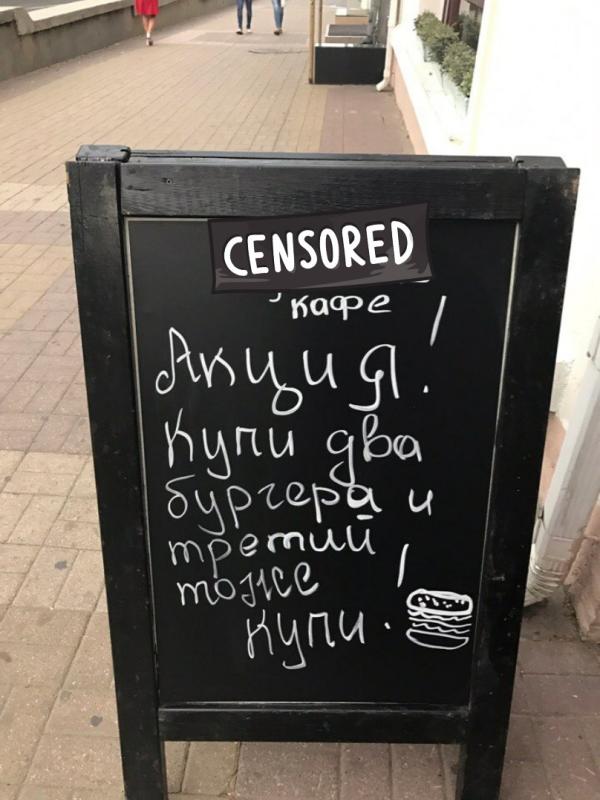 CENSORED
кафе
Акция!
Купи два
бургера и
третий
тоже
купи!